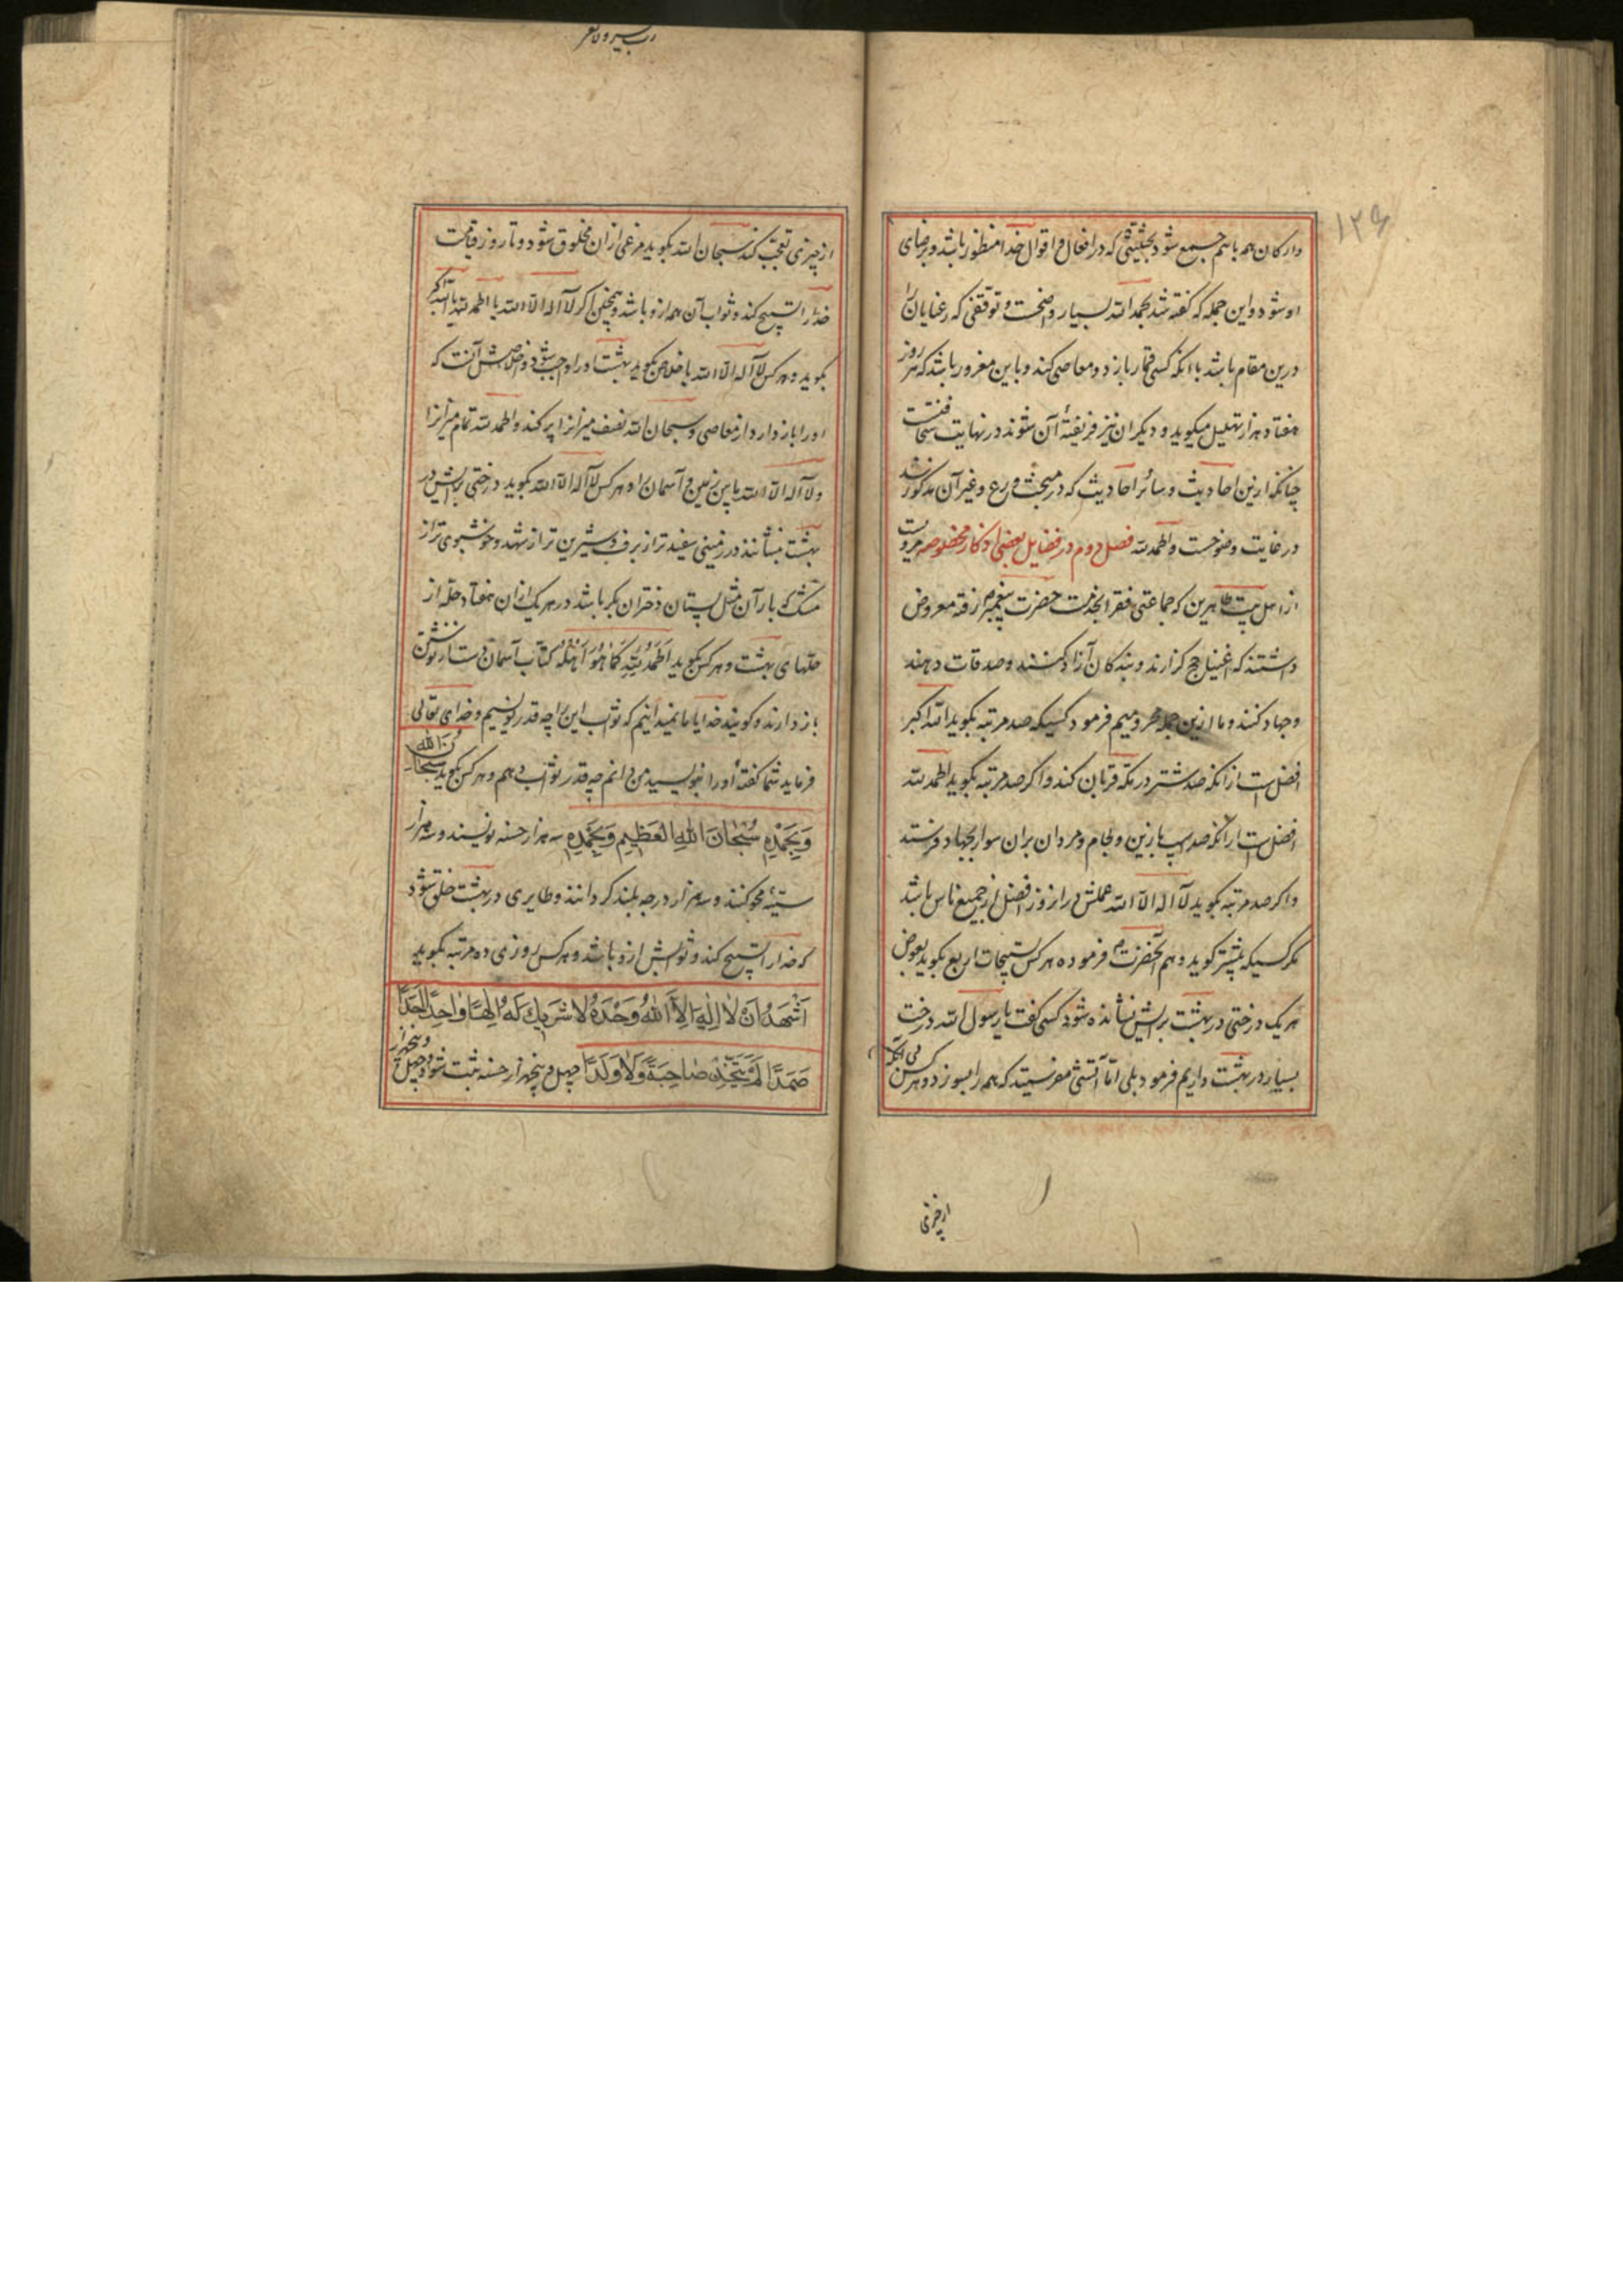 ۱۲۶
وارکان همه باهم جمیع شود بحیثیتی که در افعال و اقوال خدا منظور باشد و برضای
او شود و این جمله که گفته شد بحمد الله بسیار واضحست و توقفی که رعنایان را
درین مقام باشد با آنکه کسی قمار بازد و معاصی کند و باین مغرور باشد که هر روز
هفتاد هزار تهلیل میکوید و دیکران نیز فریفتهٔ آن شوند در نهایت سخافتست
چنانکه ازین احادیث و سائر احادیث که در مبحث ورع و غیر آن مذکور شد
در غایت وضوحست والحمد لله فصل دوم در فضایل بعضی اذکار مخصوصه مرویست
از اهل بیت طاهرین که جماعتی فقرا بخدمت حضرت پیغمبر رفته معروض
داشتند که اغنیا حج کزارند و بندکان آزاد کنند و صدقات دهند
وجهاد کنند و ما ازین جمله محرومیم فرمود کسیکه صد مرتبه بکوید الله اکبر
افضل است از آنکه صد شتر در مکه قربان کند و اکر صد مرتبه بکوید الحمد لله
افضل است از آنکه صد اسب با زین و لجام و مردان بران سوار بجهاد فرستد
و اکر صد مرتبه بکوید لا اله الا الله عملش در انروز افضل از جمیع ناس باشد
مکر کسیکه بیشتر کوید و هم آنحضرت فرموده هر کس تسبیحات اربع بکوید بعوض
هر یک درختی در بهشت برایش نشانده شود کسی کفت یا رسول الله درخت
بسیار در بهشت داریم فرمود بلی اما آتشی مفرستید که همه را بسوزد و هر کس بی آنکه
از چیزی
از چیزی تعجب کند سبحان الله بکوید مرغی ازان مخلوق شود و تا روز قیامت
خدا را تسبیح کند و ثواب آن همه ازو باشد و همچنین اکر لا اله الا الله یا الحمد لله یا الله اکبر
بکوید و هر کس لا اله الا الله باخلاص بکوید بهشت او را واجب شود و اخلاصش آنست که
او را باز دارد از معاصی و سبحان الله نصف میزانرا پر کند و الحمد لله تمام میزانرا
و لا اله الا الله مابین زمین و آسمان را و هر کس لا اله الا الله بکوید درختی برایش در
بهشت بنشانند در زمینی سفید تر از برف و شیرین تر از شهد و خوشبوی تر از
مشک که بار آن مثل پستان دختران بکر باشد در هر یک ازان هفتاد حله از
حلهای بهشت و هر کس بکوید اَلْحَمْدُ لِلّٰهِ كَمَا هُوَ اَهْلُهُ کتاب آسمان دست از نوشتن
باز دارند و کویند خدایا ما نمیدانیم که ثواب این را چه قدر نویسیم و خدای تعالی
فرماید شما کفتهٔ او را بنویسید من دانم چه قدر ثواب دهم و هر کس بکوید سُبْحَانَ اللهِ
وَبِحَمْدِهِ سُبْحَانَ اللهِ الْعَظِيمِ وَبِحَمْدِهِ سه هزار حسنه نویسند و سه هزار
سیئه محو کنند و سه هزار درجه بلند کردانند و طایری در بهشت خلق شود
که خدا را تسبیح کند و ثوابش ازو باشد و هر کس روزی ده مرتبه بکوید
اَشْهَدُ اَنْ لَا اِلٰهَ اِلَّا اللهُ وَحْدَهُ لَا شَرِيكَ لَهُ اِلٰهًا وَاحِدًا اَحَدًا
صَمَدًا لَمْ يَتَّخِذْ صَاحِبَةً وَلَا وَلَدًا چهل و پنجهزار حسنه ثبت شود و چهل و پنجهزار